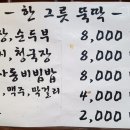 - 한 그릇 뚝딱 -
장, 순두부 8,000
찌, 청국장 8,000
동비빔밥 8,000
, 맥주, 막걸리 4,000
2,000